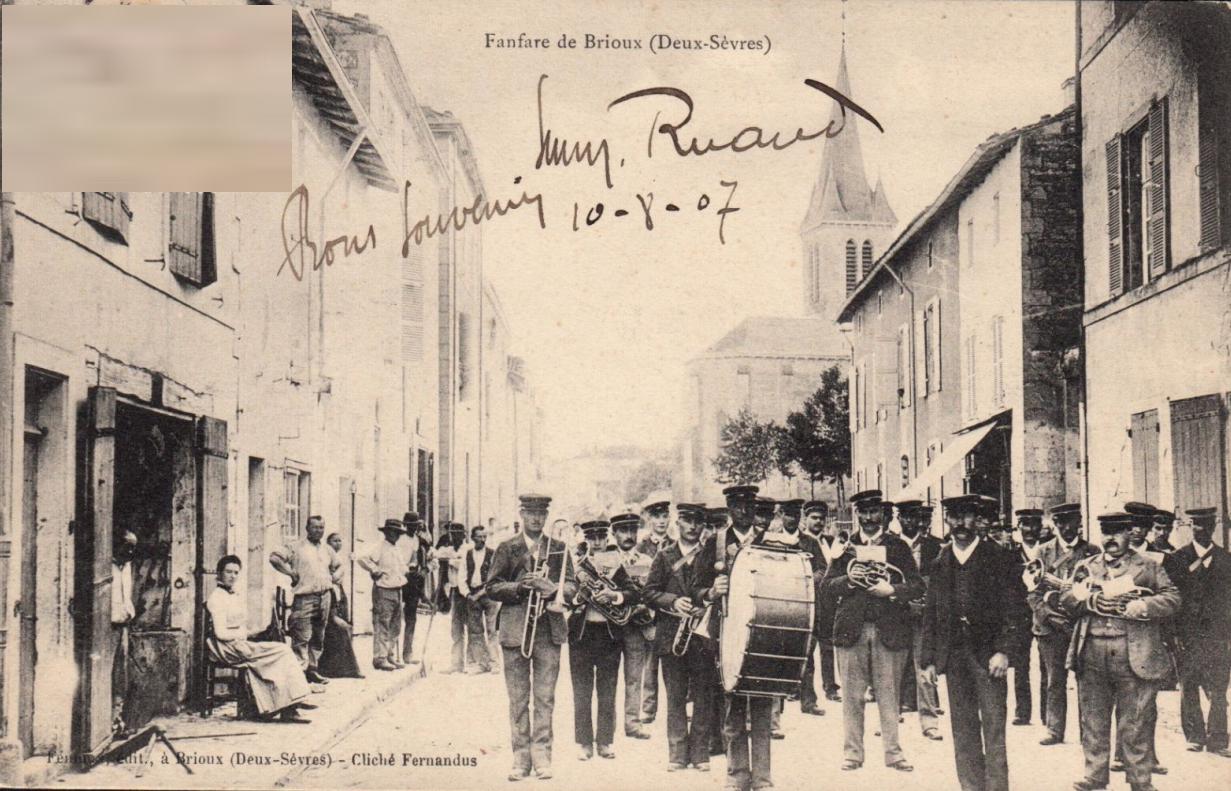 Fanfare de Brioux (Deux-Sèvres)
Ruaud
Bons Souvenirs 10-8-07
édit., à Brioux (Deux-Sèvres) - Cliché Fernandus